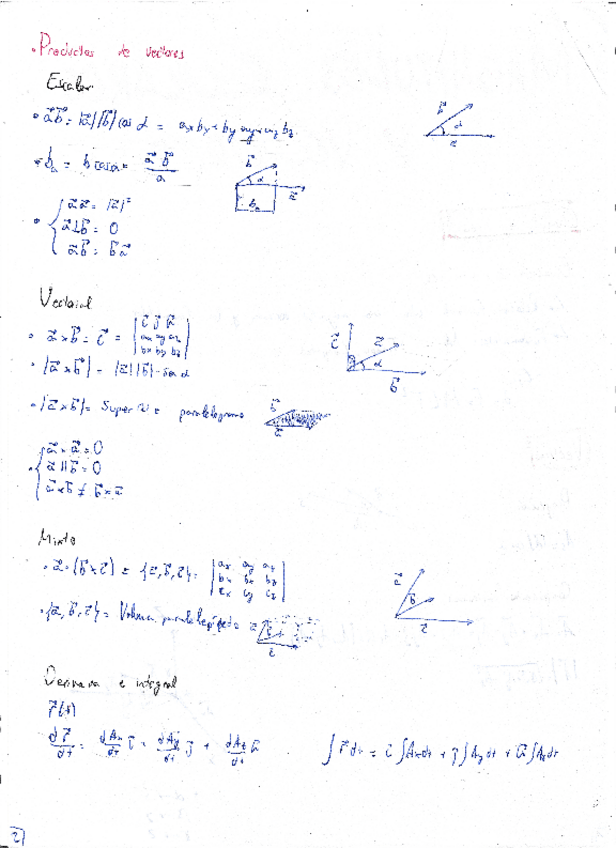 • Productos de vectores
Escalar
• a⃗ b⃗ = |a⃗||b⃗| cos α = ax bx + by
b⃗ α a⃗
• bₐ = b cos α = a⃗ b⃗ / a
b⃗ α a⃗ bₐ
• { a⃗ a⃗ = |a⃗|²
a⃗ ⊥ b⃗ = 0
a⃗ b⃗ = b⃗ a⃗
Vectorial
• a⃗ x b⃗ = c⃗ = | i⃗ j⃗ k⃗ |
| ax ay az |
| bx by bz |
c⃗ a⃗ α b⃗
• |a⃗ x b⃗| = |a⃗||b⃗| · sen α
• |a⃗ x b⃗| = paralelogramo
b⃗ a⃗
• { a⃗ x a⃗ = 0
a⃗ || b⃗ = 0
a⃗ x b⃗ ≠ b⃗ x a⃗
Mixto
• a⃗ · (b⃗ x c⃗) = {a⃗, b⃗, c⃗} = | ax ay az |
| bx by bz |
| cx cy cz |
a⃗ b⃗ c⃗
• {a⃗, b⃗, c⃗} = Volumen paralelepípedo
a⃗ b⃗ c⃗
Derivada e integral
r⃗(t)
dr⃗/dt = dAx/dt i⃗ + dAy/dt j⃗ + dAz/dt k⃗
∫ r⃗ dt = i⃗ ∫Ax dt + j⃗ ∫Ay dt + k⃗ ∫Az dt
2)